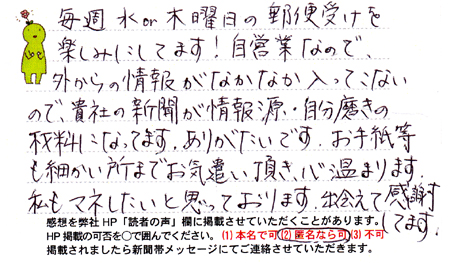 毎週水or木曜日の郵便受けを
楽しみにしてます！自営業なので、
外からの情報がなかなか入ってこない
ので、貴社の新聞が情報源・自分磨きの
材料になってます。ありがたいです。お手紙等
も細かい所までお気遣い頂き、心温まります。
私もマネしたいと思っております。出会えて感謝
してます。
感想を弊社HP「読者の声」欄に掲載させていただくことがあります。
HP掲載の可否を○で囲んでください。(1)本名で可(2)匿名なら可(3)不可
掲載されましたら新聞帯メッセージにてご連絡させていただきます。